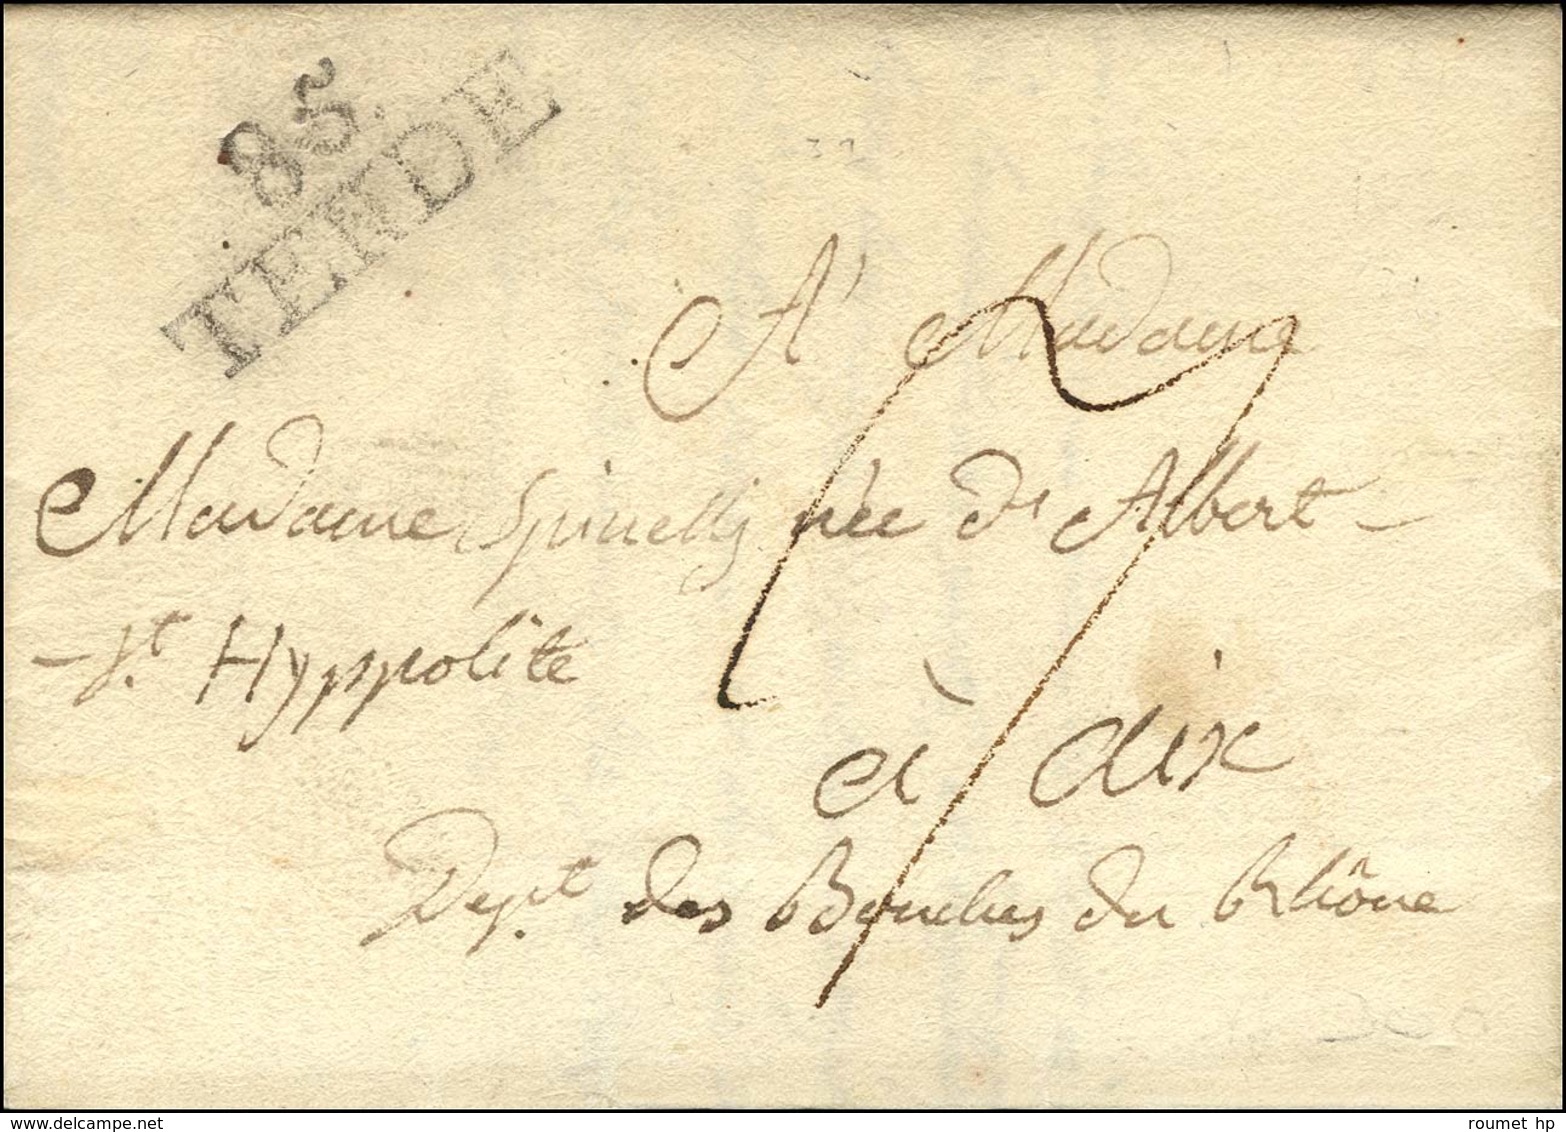 85.
TENDE
A' Madame
Madame Spinelly née d'Albert
- St. Hyppolite
à aix
Dept. des Bouches du Rhône
7
roumet hp